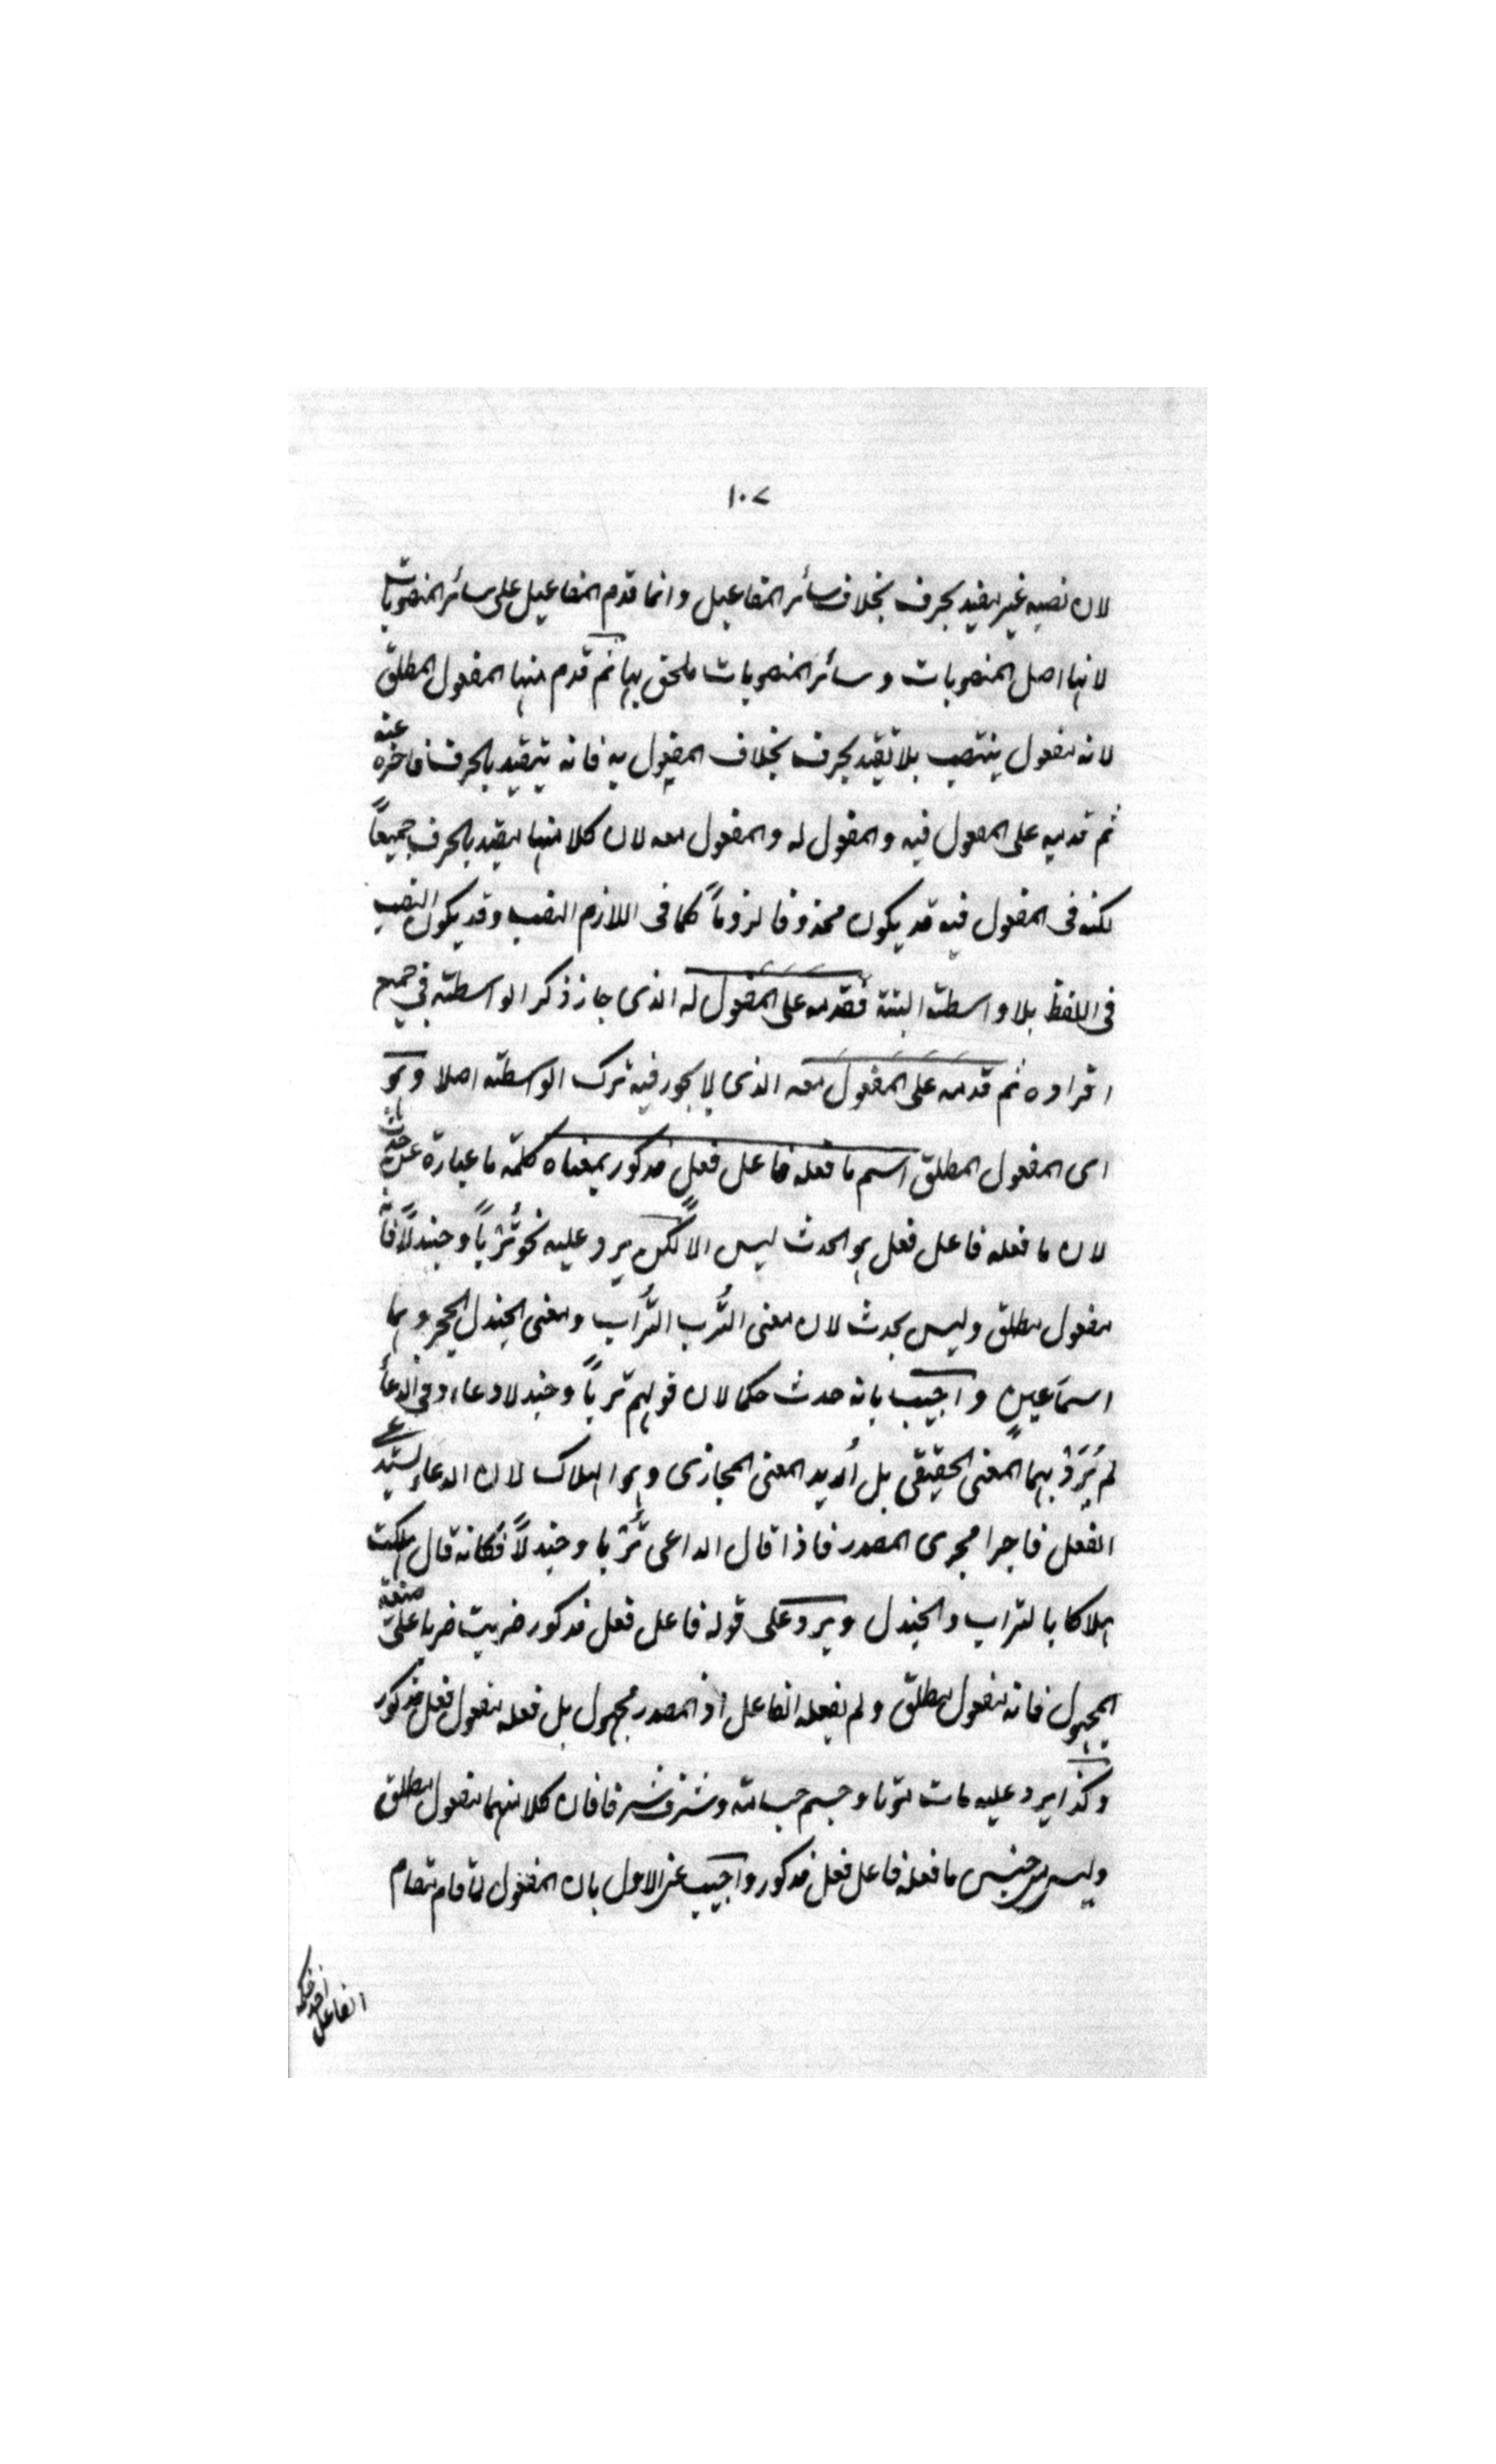 ١٠٧
لان نصبه غير مقيد بحرف بخلاف سائر المفاعيل وانما قدم المفاعيل على سائر المنصوبات
لانها اصل المنصوبات وسائر المنصوبات ملحق بها ثم قدم منها المفعول المطلق
لانه مفعول ينتصب بلا تقيد بحرف بخلاف المفعول به فانه يتقيد بالحرف فاخره عنه
ثم قدمه على المفعول فيه والمفعول له والمفعول معه لان كلا منها مقيد بالحرف جميعاً
لكنه فى المفعول فيه قد يكون محذوفا لزوماً كما فى اللازم النصب وقد يكون النصب
فى اللفظ بلا واسطة البتة فقدمه على المفعول له الذى جاز ذكر الواسطة فى جميع
افراده ثم قدمه على المفعول معه الذى لا يجوز فيه ترك الواسطة اصلا وهو
اى المفعول المطلق اسم ما فعله فاعل فعل مذكور بمعناه كلمة ما عبارة عن حدث
لان ما فعله فاعل فعل هو الحدث ليس الاّ لكن يرد عليه نحو تُرْباً وجندلاً فانه
مفعول مطلق وليس بحدث لان معنى التُّرب التُّراب ومعنى الجندل الحجر وهما
اسما عين واجيب بانه حدث حكما لان قولهم ترباً وجندلا دعاء وفى الدعاء
لم يُرَدْ بهما المعنى الحقيقى بل اُريد المعنى المجازى وهو الهلاك لان الدعاء يستدعى
الفعل فاجرا مجرى المصدر فاذا قال الداعى تُرْبا وجندلاً فكانه قال هلكت
هلاكا بالتراب والجندل ويرد على قوله فاعل فعل مذكور ضربت ضربا على صيغة
المجهول فانه مفعول مطلق ولم يفعله الفاعل اذ المصدر مجهول بل فعله مفعول فعل مذكور
وكذا يرد عليه مات موتا وجسم جسامة وشرف شرفا فان كلا منهما مفعول مطلق
وليس من جنس ما فعله فاعل فعل مذكور واجيب عن الاول بان المفعول لما قام مقام
الفاعل اخذ حكمه